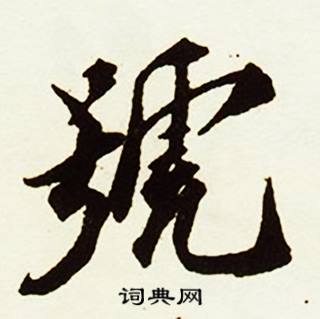 號
词典网